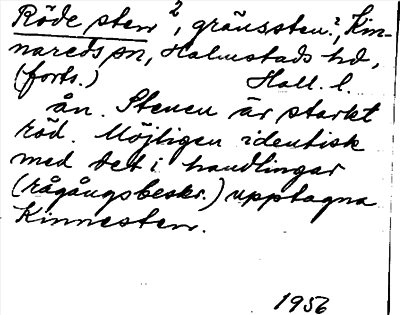 Röde sten ², gränssten?, Kin-
nareds sn, Halmstads hd,
(forts.) Hall. l.
ån. Stenen är starkt
röd. Möjligen identisk
med det i handlingar
(rågångsbeskr.) upptagna
Kinnesten.
1956